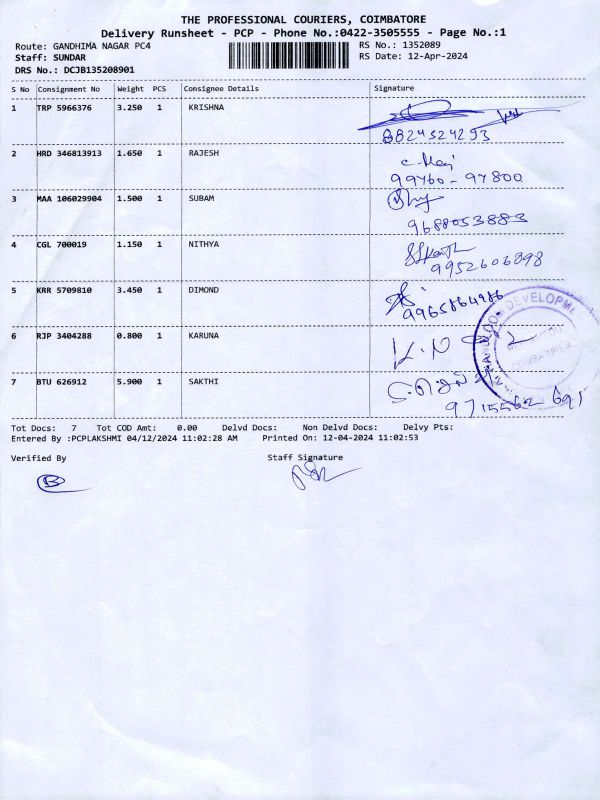 THE PROFESSIONAL COURIERS, COIMBATORE
Delivery Runsheet - PCP - Phone No.:0422-3505555 - Page No.:1
Route: GANDHIMA NAGAR PC4 RS No.: 1352089
Staff: SUNDAR RS Date: 12-Apr-2024
DRS No.: DCJB135208901
S No Consignment No Weight PCS Consignee Details Signature
1 TRP 5966376 3.250 1 KRISHNA
8824324293
2 HRD 346813913 1.650 1 RAJESH
99760-97800
3 MAA 106029904 1.500 1 SUBAM
9688053883
4 CGL 700019 1.150 1 NITHYA
9952606898
5 KRR 5709810 3.450 1 DIMOND
9965864986
6 RJP 3404288 0.800 1 KARUNA
7 BTU 626912 5.900 1 SAKTHI
9715562 691
Tot Docs: 7 Tot COD Amt: 0.00 Delvd Docs: Non Delvd Docs: Delvy Pts:
Entered By :PCPLAKSHMI 04/12/2024 11:02:28 AM Printed On: 12-04-2024 11:02:53
Verified By Staff Signature